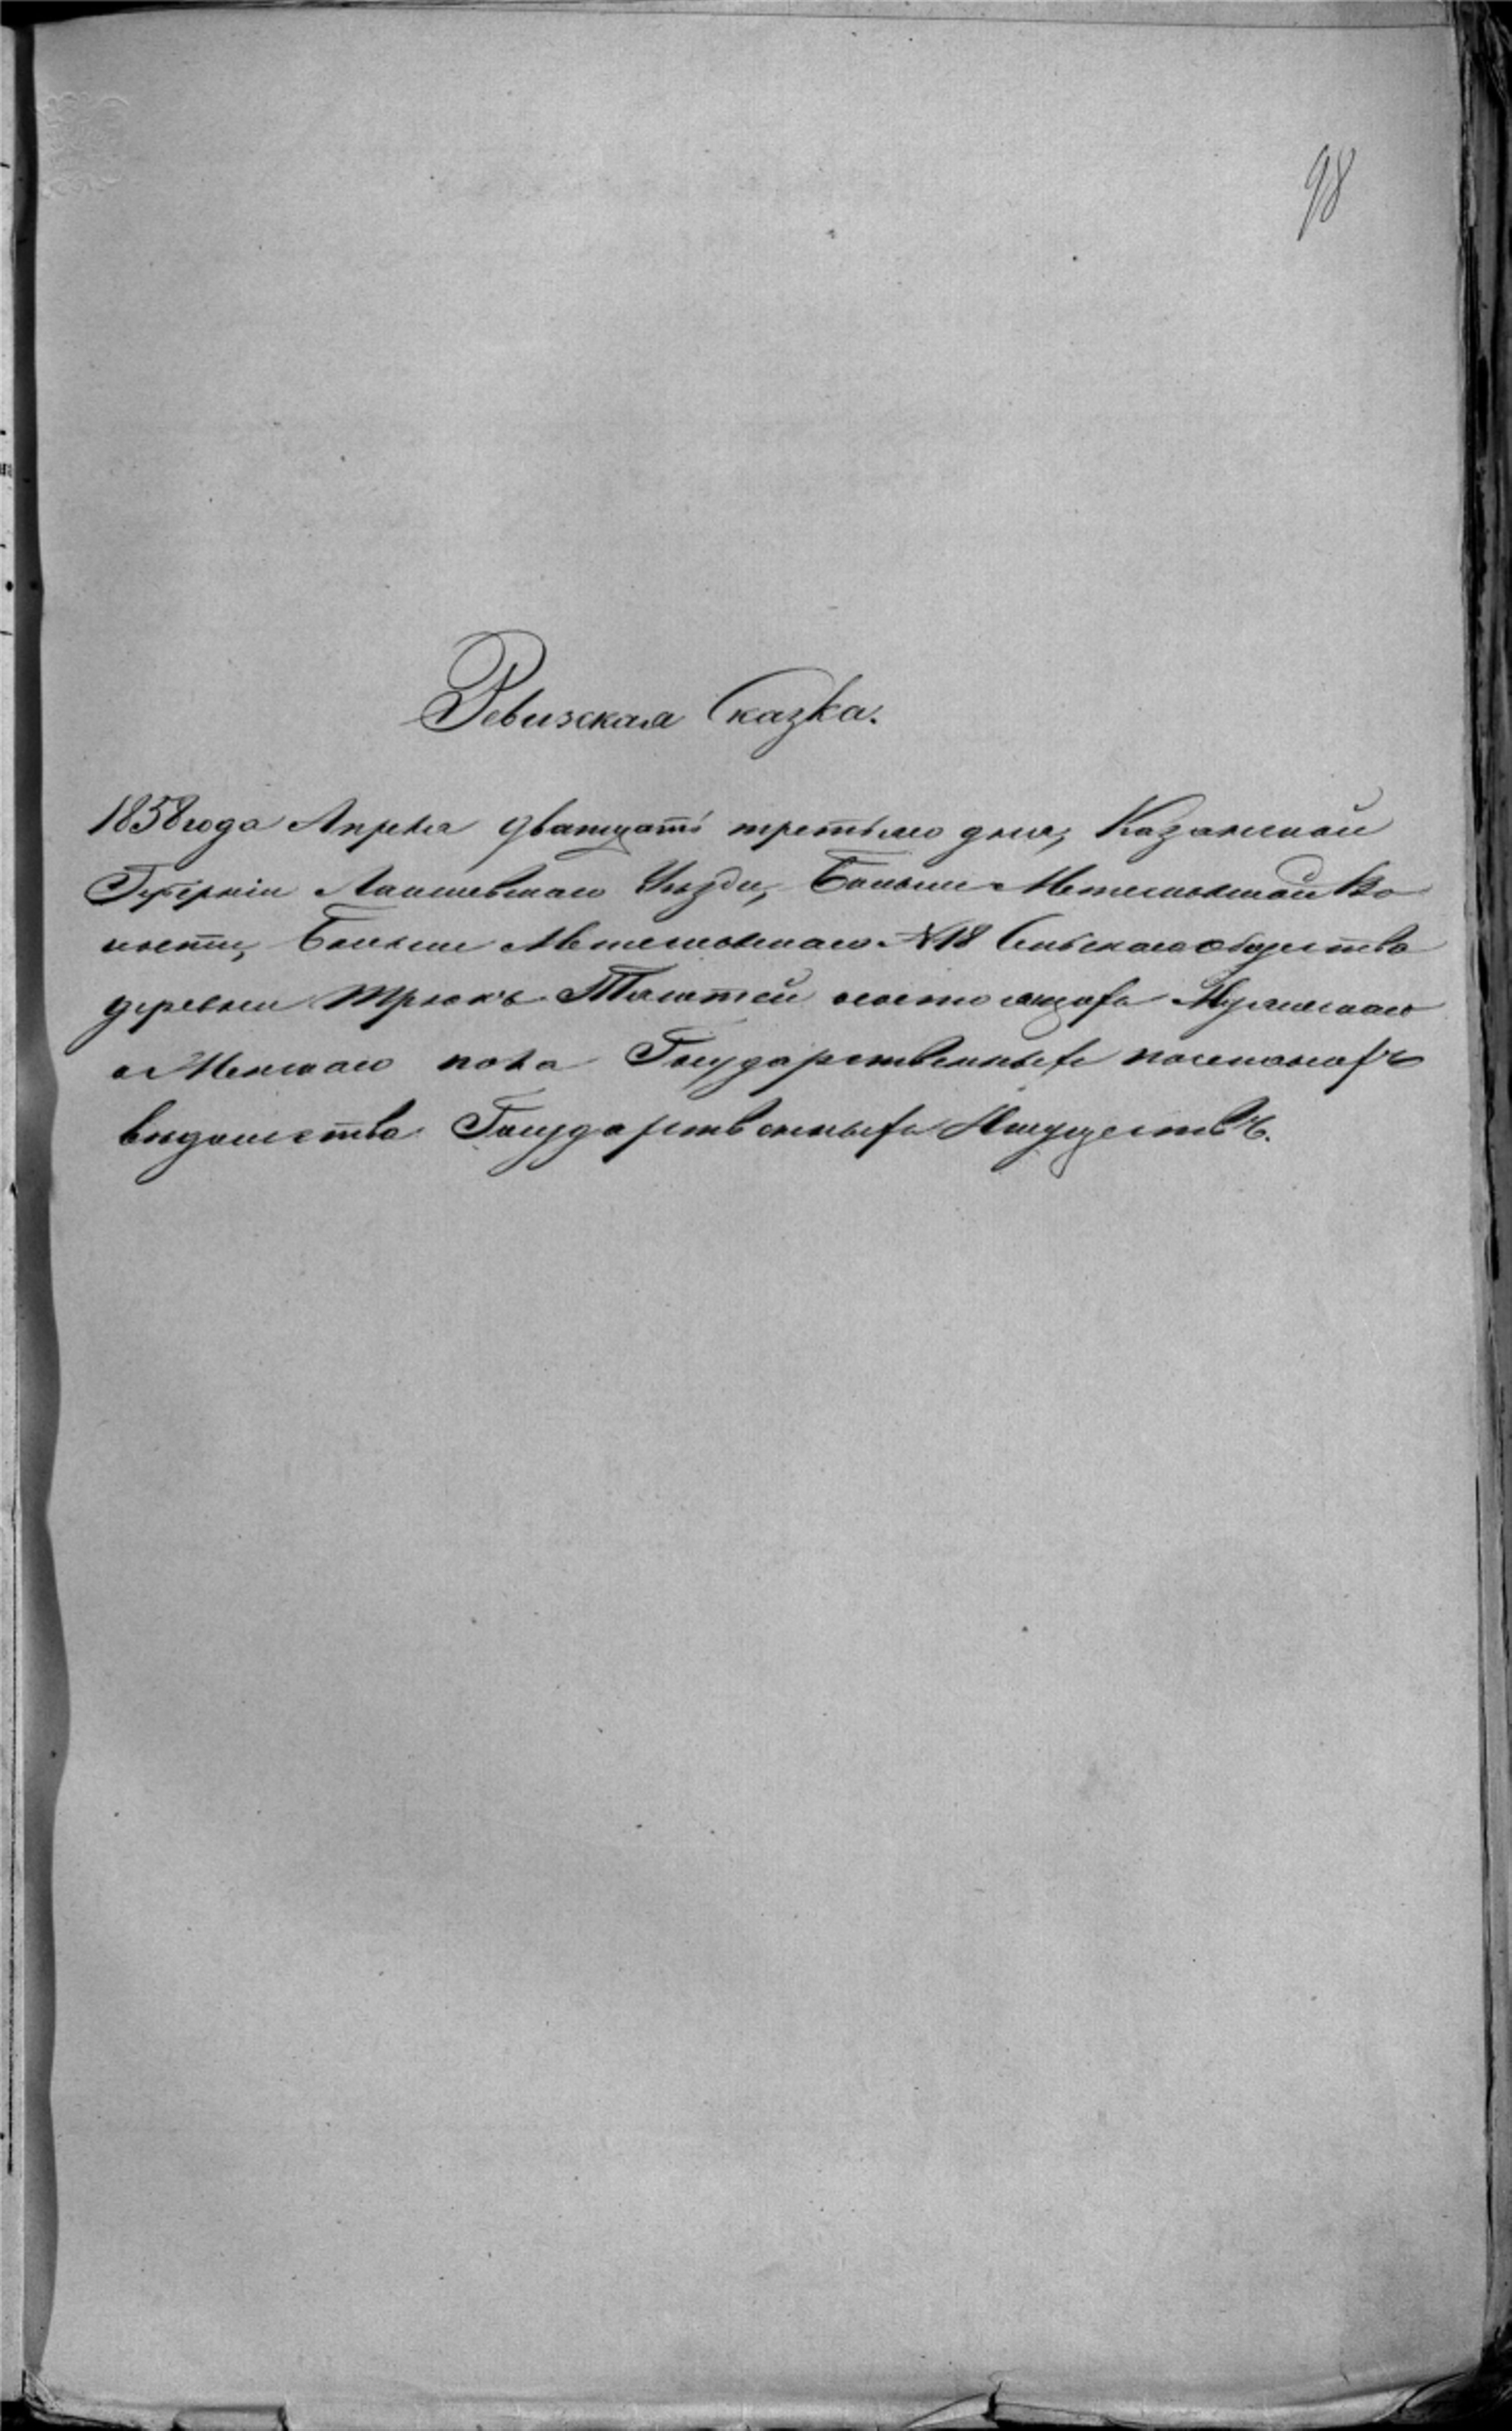 98
Ревизская Сказка.
1858 года Апреля дватцать третьяго дня, Казанской
Губерніи Лаишевскаго Уезда, Больше Метескинской Во
лости, Больше Метескинскаго №18 Сельскаго общества
деревни Трюкъ Тямтей о состоящихъ Мужескаго
и Женскаго пола Государственныхъ поселянахъ
ведомства Государственныхъ Имуществъ.